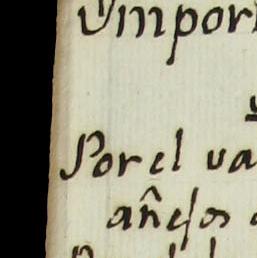 Ymport
Por el va
añejos